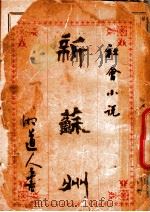 社會小说
新蘇州
道人書